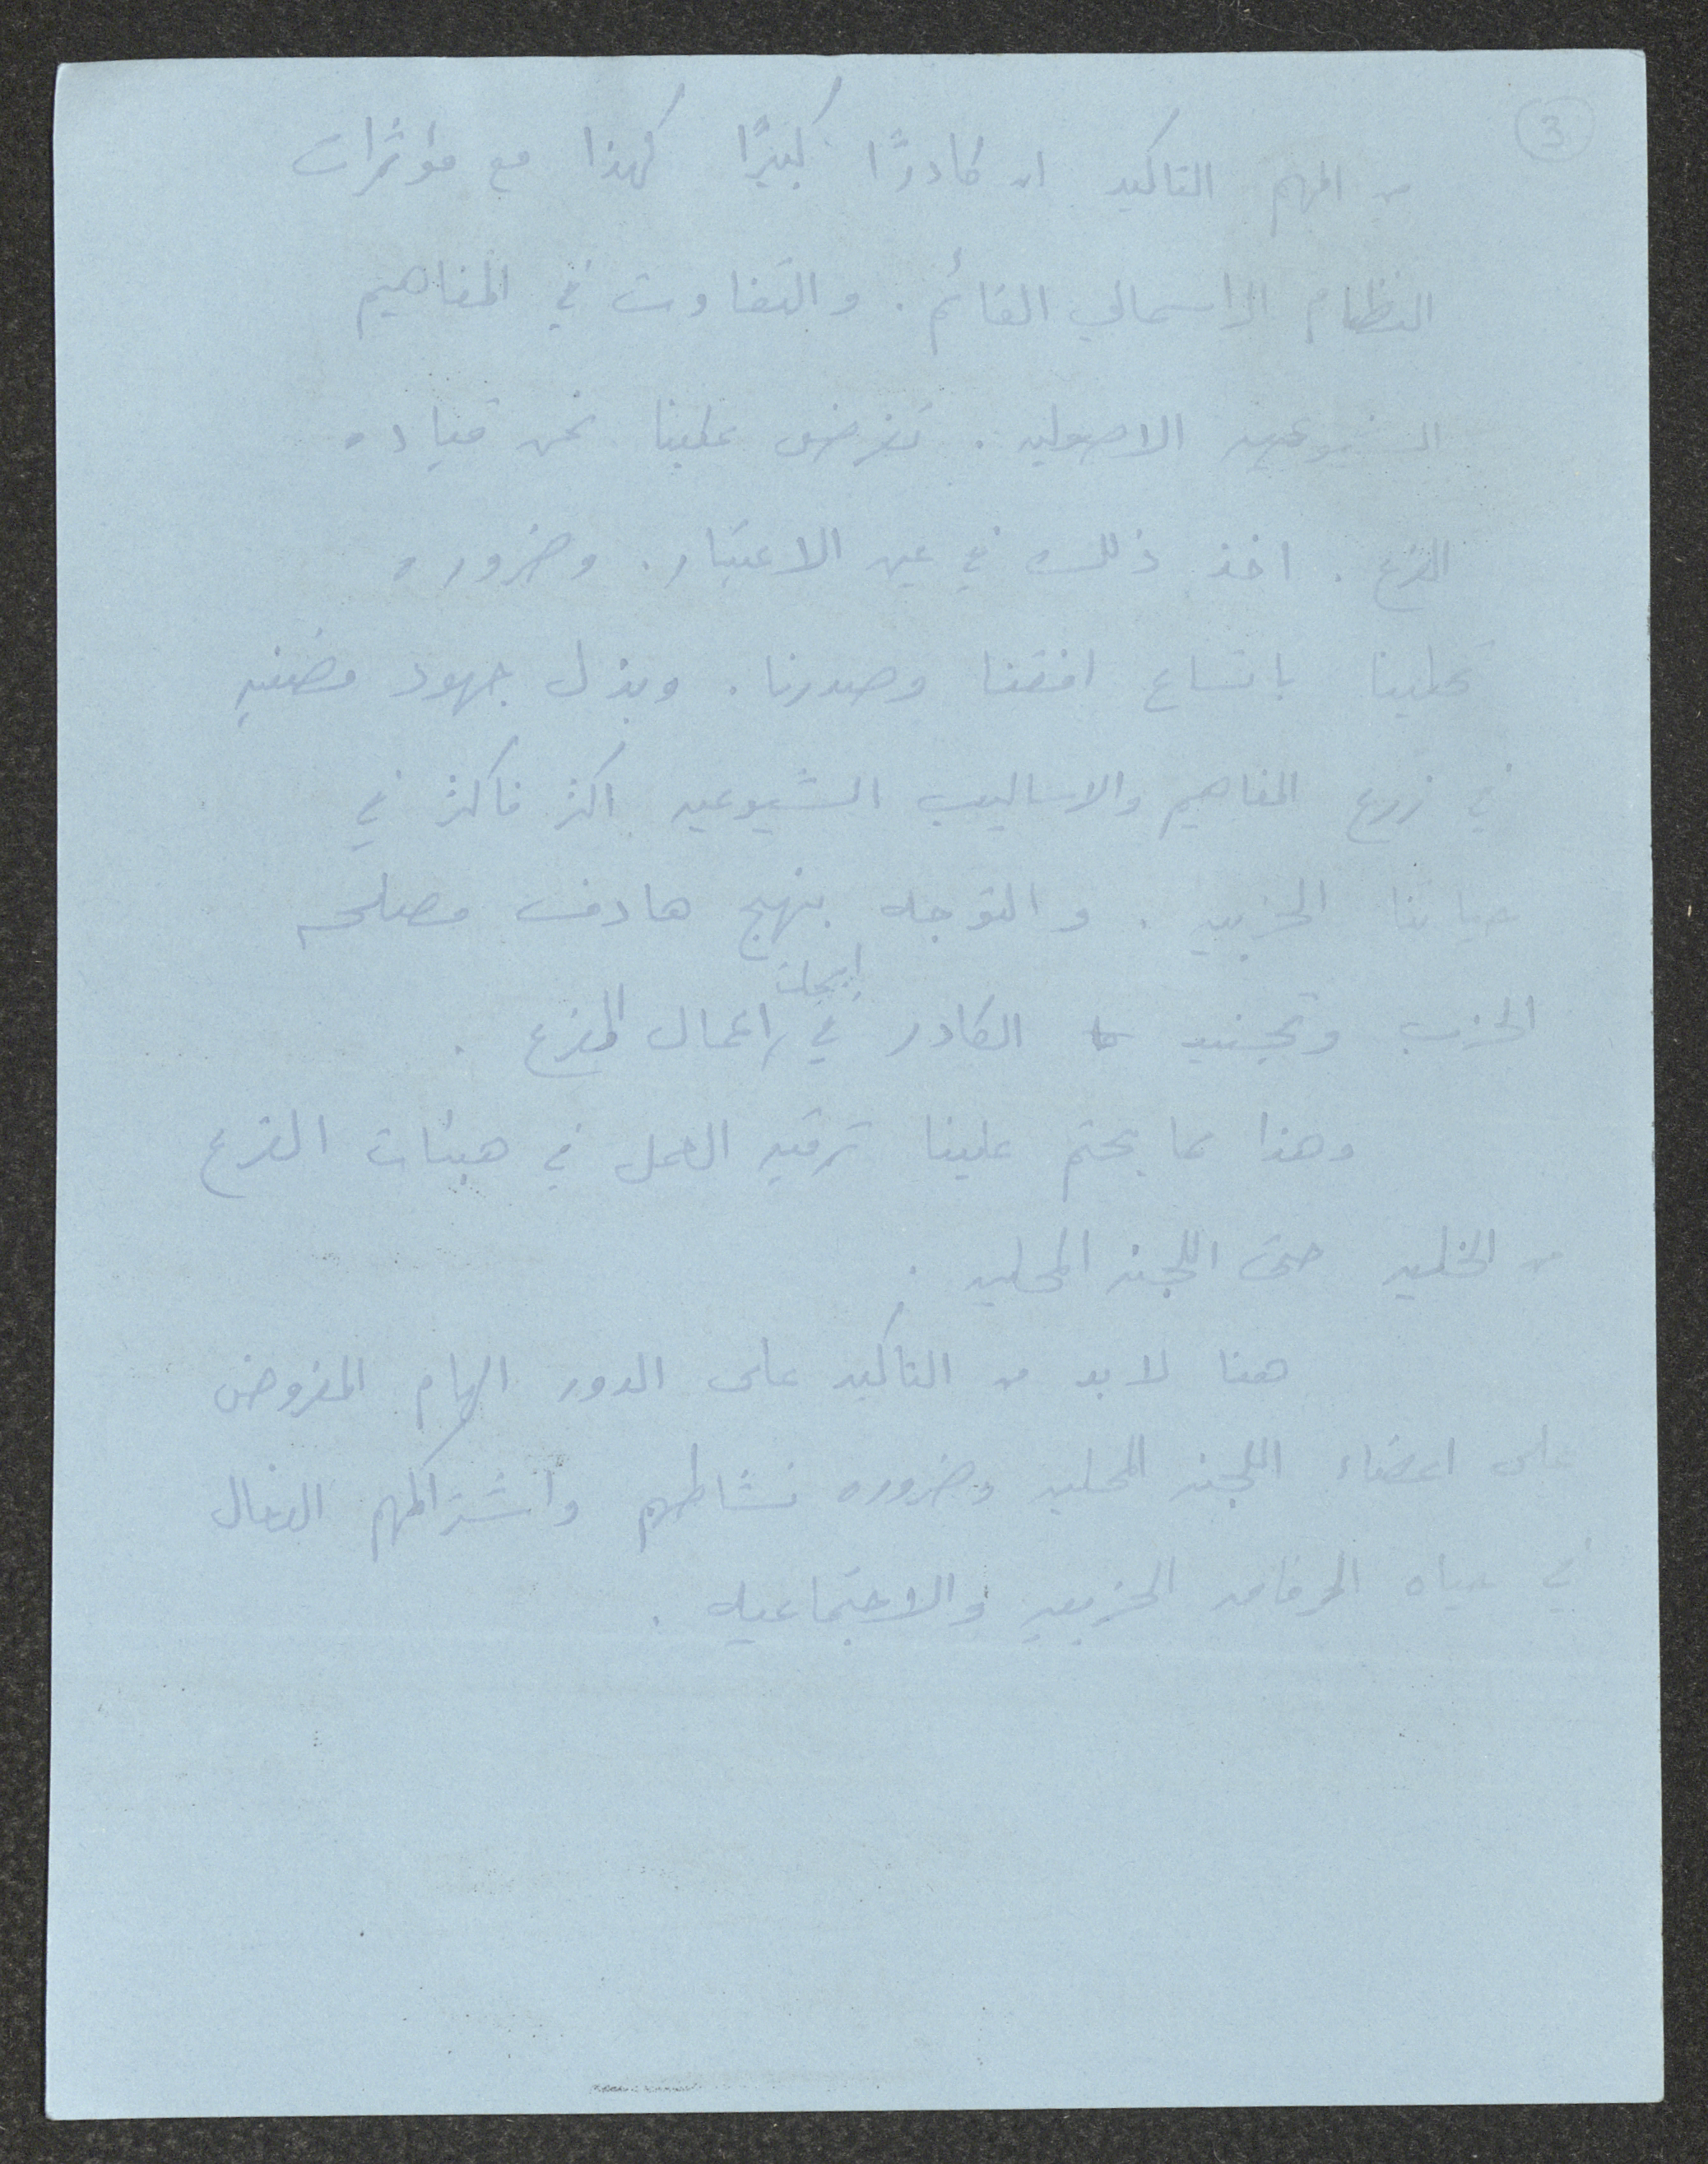 3
من المهم التاكيد ان كادرًا كبيرًا كهذا مع مؤثرات
النظام الراسمالي القائم . والتفاوت في المفاهيم
الشيوعيه الاصوليه . تفرض علينا نحن قياده
الفرع . اخذ ذلك في عين الاعتبار . وضروره
تحلينا باتساع افقنا وصدرنا . وبذل جهود مضنيه
في زرع المفاهيم والاساليب الشيوعيه اكثر فاكثر في
حياتنا الحزبيه . والتوجه بنهج هادف مصلحه
الحزب وتجنيد الكادر في اعمال الفرع .
وهذا مما يحتم علينا ترقيه العمل في هيئات الفرع
من الخليه حتى اللجنه المحليه .
هنا لا بد من التاكيد على الدور الهام المفروض
على اعضاء اللجنه المحليه وضروره نشاطهم واشتراكهم الفعال
في حياه الرفاق الحزبيه والاجتماعيه .